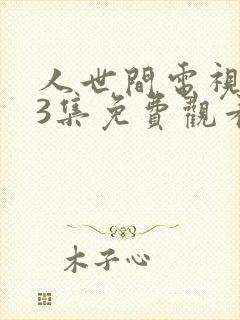 人世間電視
3集免費觀看
木子心